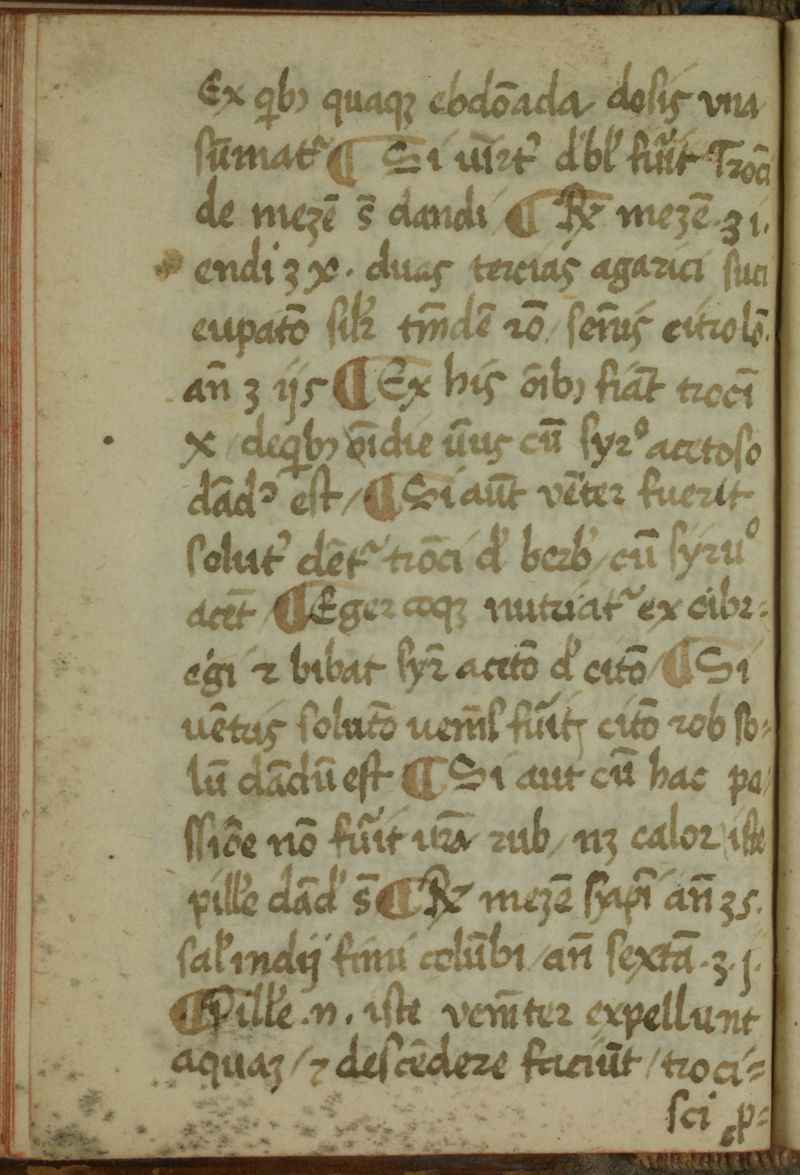 Ex qͥbꝫ quaqꝫ ebdōada dosis vna
sūmatᷣ ¶ Si uirtꝰ d'bl' fu̾it Troci
de mezē s̄ dandi ¶ ℞ mezē ʒ i.
endi ʒ x. duas tercias agarici suci
eupatō sil'r tm̄dē ro / sem̄is citrolō
añ ʒ ijs ¶ Ex his oīb' fiāt trocī
x / deqͥbꝫ oīdie ūus cū syrº acetoso
dād' est / ¶ Si aūt vēter fuerit
solut' dēt᷑ trōci d' berb' cū syruº
acet̄ ¶ Eger coqꝫ nutriat᷑ ex cibr=
egi ⁊ bibat syr̄ acetō d' citō ¶ Si
uētris solutō uem̄s fu̾itꝫ citō rob so=
lū dādū est ¶ Si aut cū hac pa/
ssiōe nō fu̾it urā rub / nꝫ calor iste
pill'e dād' s̄ ¶ ℞ mezē syapī añ ʒs.
sal' indij fimi colūbi / añ sextā . ʒ . j.
¶ Pill'e .n. iste vem̄ter expellunt
aquaꝫ / ⁊ descēdere faciūt / troci=
sci p=